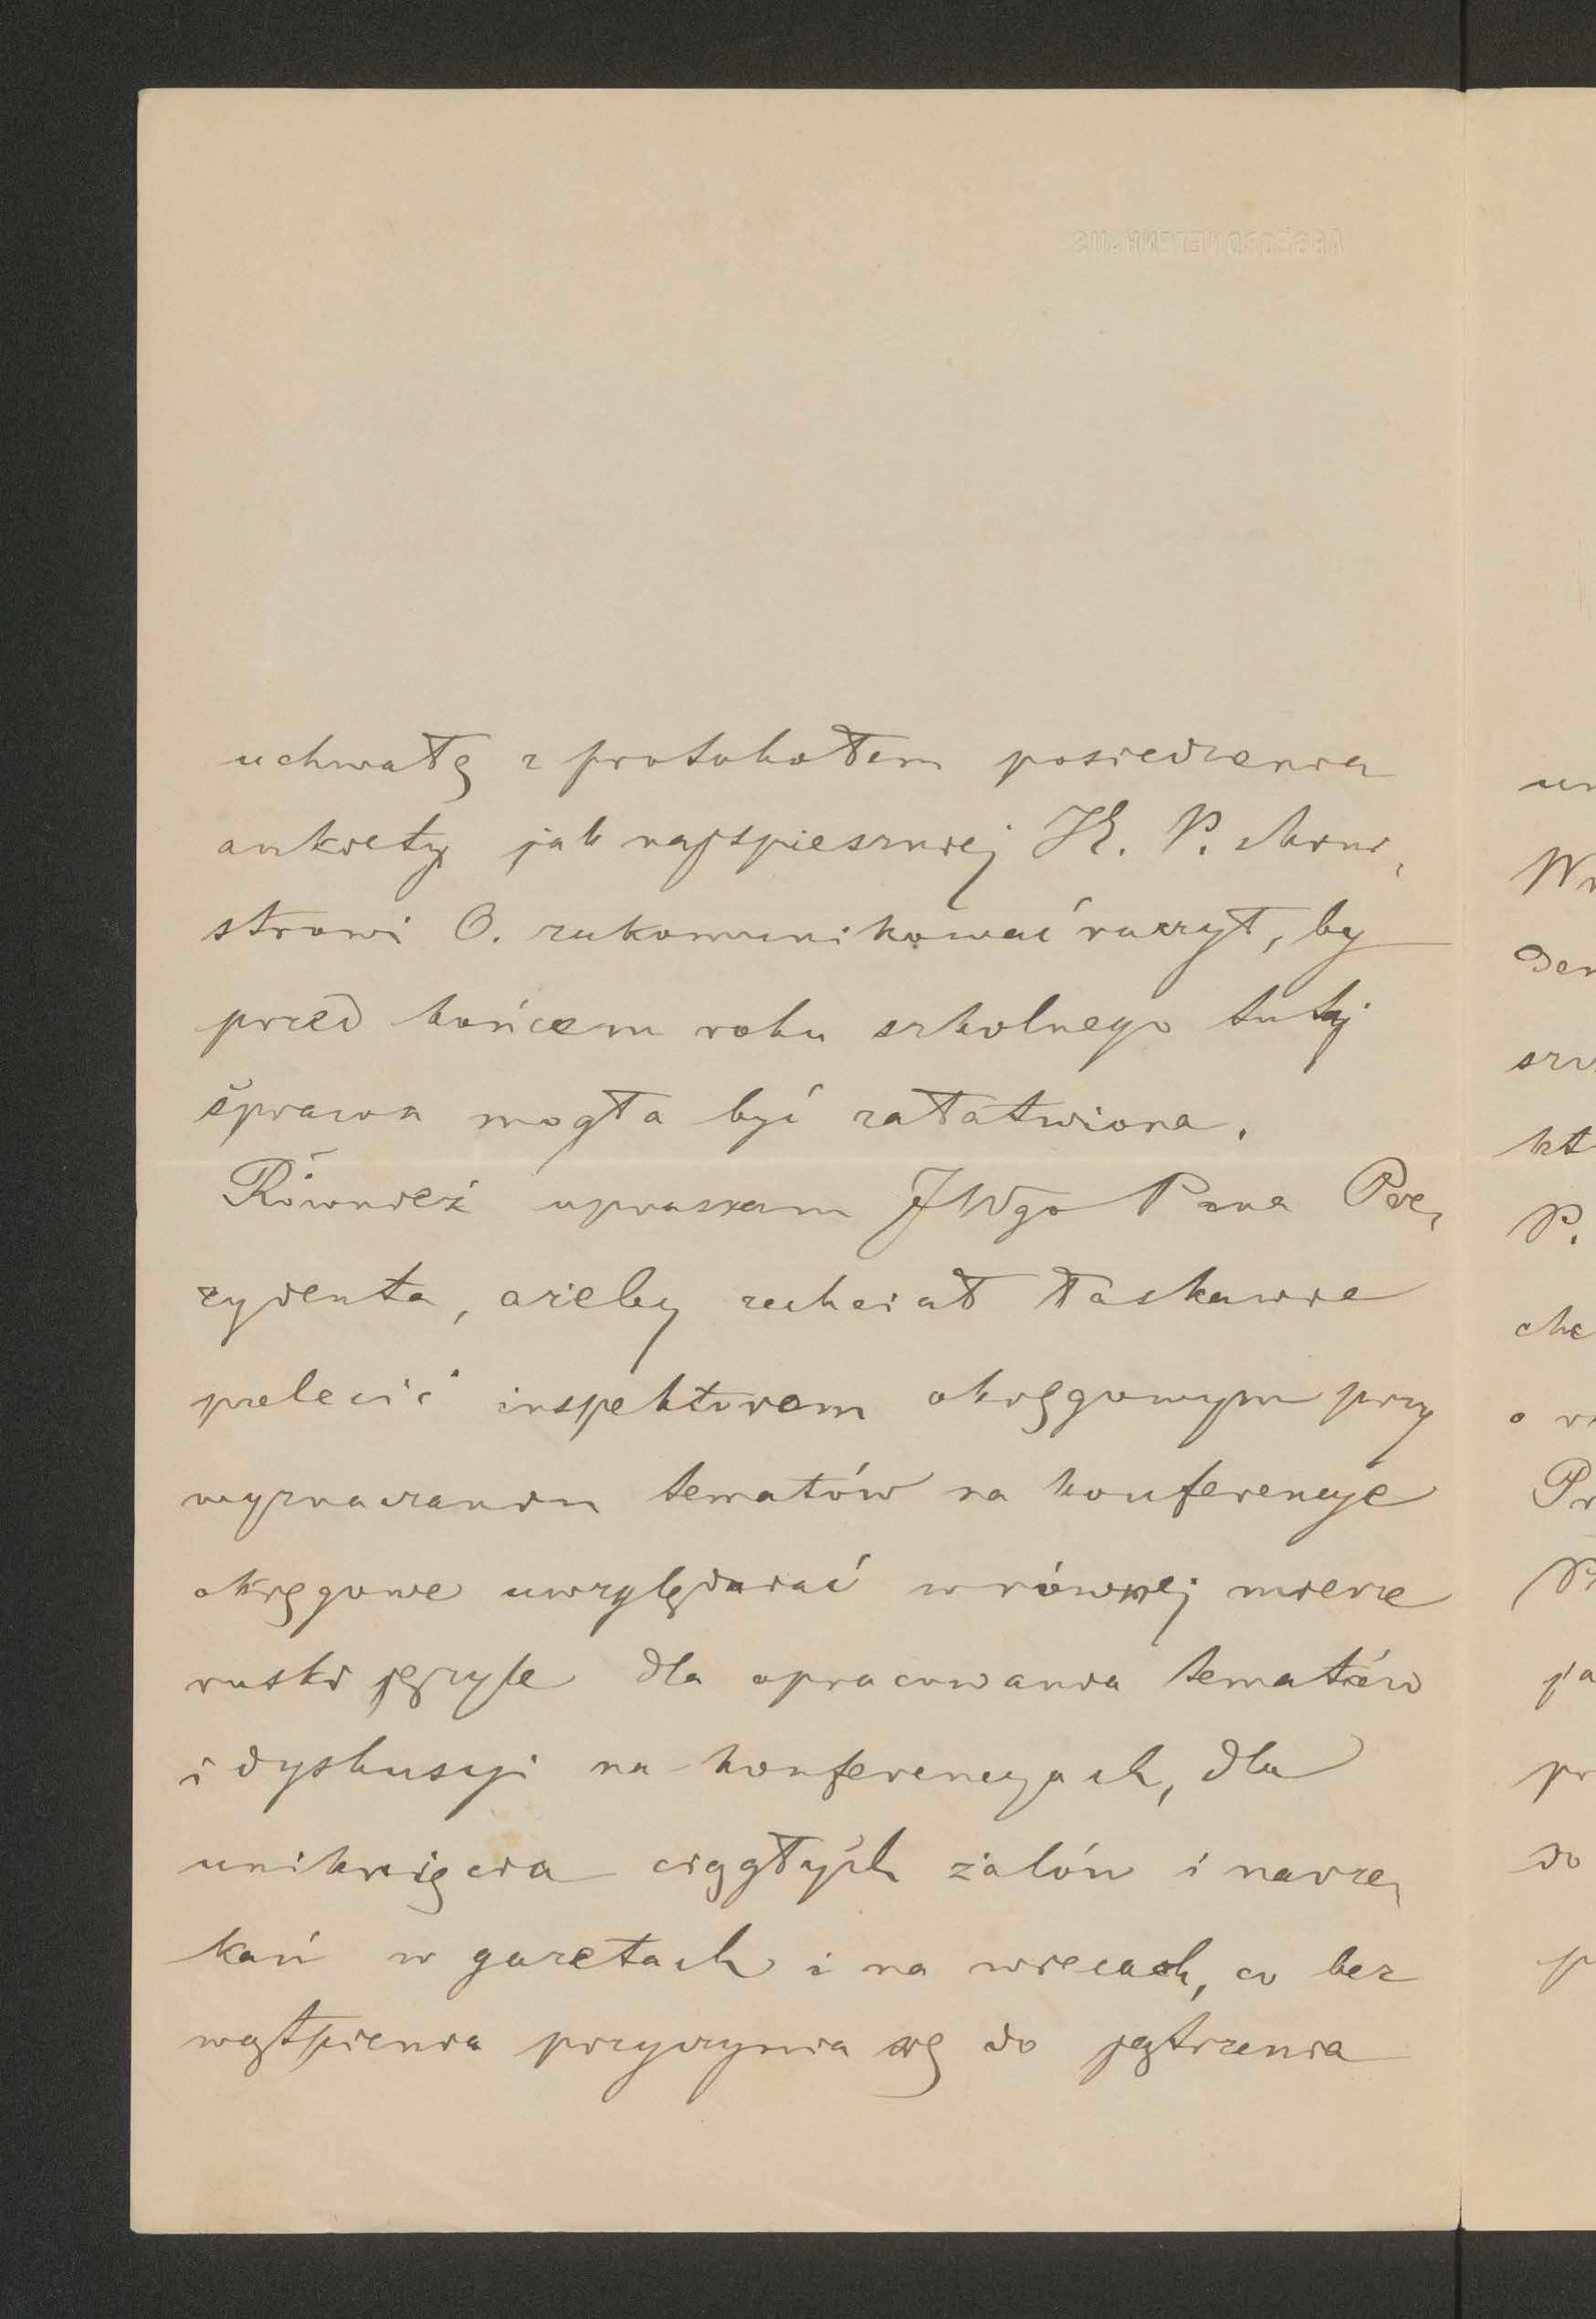 uchwałę z protokołem posiedzenia
ankiety jak najspieszniej P. Mini-
strowi O. zakomunikować raczył, by
przed końcem roku szkolnego tutaj
sprawa mogła być załatwiona.
Również upraszam JWgo Pana Pre-
zydenta, ażeby zechciał łaskawie
polecić inspektorom okręgowym przy
wyznaczaniu tematów na konferencye
okręgowe uwzględniać w równej mierze
ruski język dla opracowania tematów
i dyskusyi na konferencyach, dla
uniknięcia ciągłych żalów i narze-
kań w gazetach i na wiecach, co bez
wątpienia przyczynia się do jątrzenia